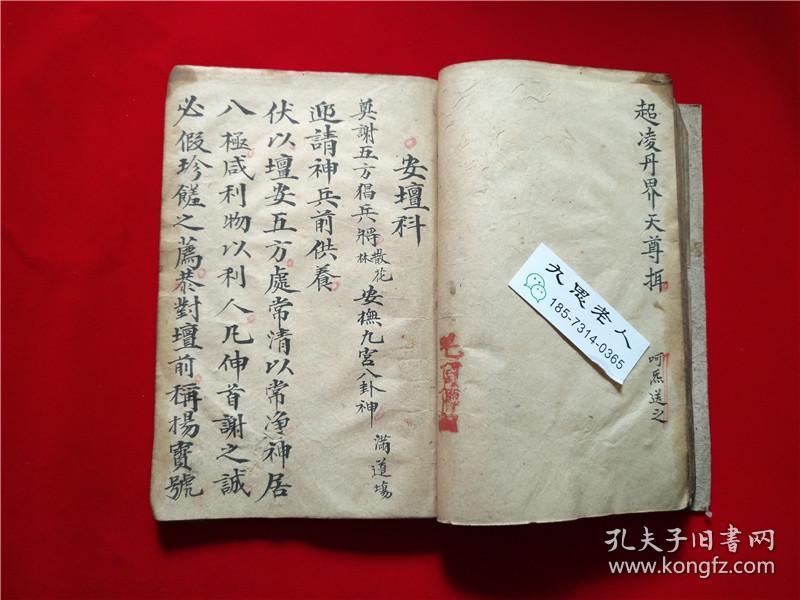 超凌丹界天尊揖
呵炁送之
久思老人
185-7314-0365
安壇科
奠謝五方猖兵將 散花林 安撫九宮八卦神 滿道場
迎請神兵前供養
伏以壇安五方處常清以常净神居
八極咸利物以利人凡伸首謝之誠
必假珍饈之薦恭對壇前稱揚寶號
孔夫子旧书网
www.kongfz.com